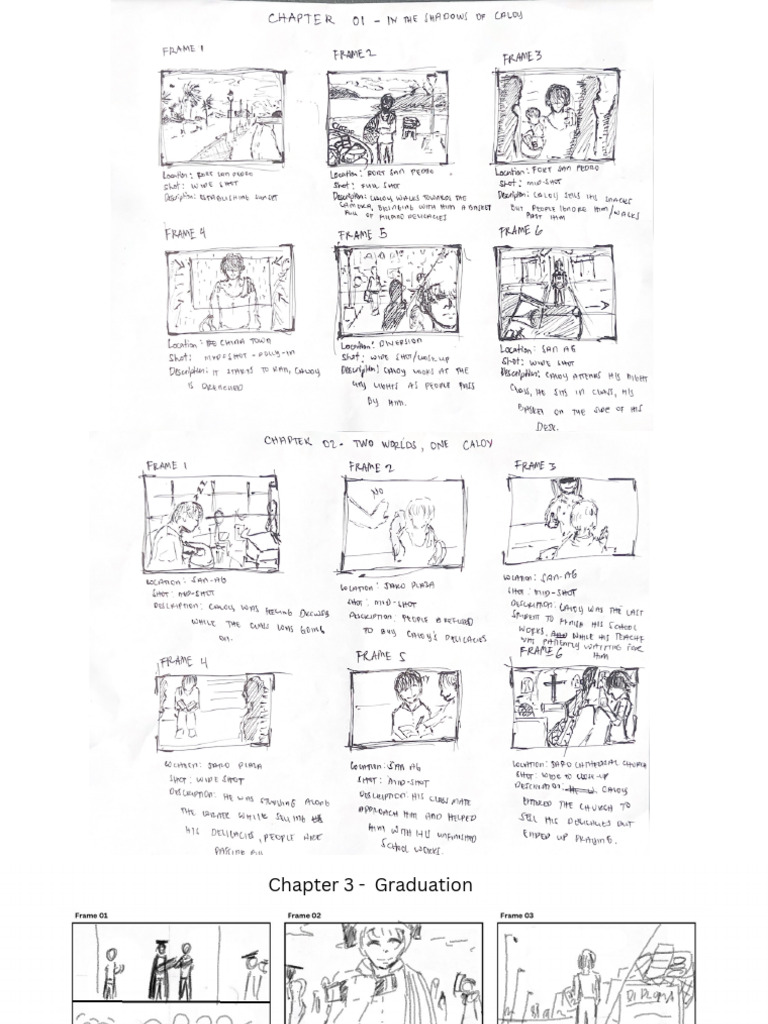 CHAPTER 01 - IN THE SHADOWS OF CALOY
FRAME 1
FRAME 2
FRAME 3
Location: FORT SAN PEDRO
Shot: WIDE SHOT
Description: ESTABLISHING SUNSET
Location: FORT SAN PEDRO
Shot: FULL SHOT
Description: CALOY WALKS TOWARDS THE
CAMERA, BRINGING WITH HIM A BASKET
FULL OF DELICACIES
Location: FORT SAN PEDRO
Shot: MID-SHOT
Description: CALOY SELLS HIS SNACKS
BUT PEOPLE IGNORE HIM/WALKS
PAST HIM
FRAME 4
FRAME 5
FRAME 6
Location: CHINA TOWN
Shot: - DOLLY-IN
Description: IT STARTS TO RAIN, CALOY
IS DRENCHED
Location: DIVERSION
Shot: WIDE SHOT/CLOSE UP
Description: CALOY LOOKS AT THE
CITY LIGHTS AS PEOPLE PASS
BY HIM.
Location: SAN AG
Shot: WIDE SHOT
Description: CALOY ATTENDS HIS NIGHT
CLASS, HE SITS IN CLASS, HIS
BASKET ON THE SIDE OF HIS
DESK.
CHAPTER 02 - TWO WORLDS, ONE CALOY
FRAME 1
FRAME 2
FRAME 3
ZZZ
NO
LOCATION: SAN-AG
SHOT: MID-SHOT
DESCRIPTION: CALOY WAS FEELING DROWSY
WHILE THE CLASS WAS GOING
ON.
LOCATION: JARO PLAZA
SHOT: MID-SHOT
DESCRIPTION: PEOPLE REFUSED
TO BUY CALOY'S DELICACIES
LOCATION: SAN-AG
SHOT: MID-SHOT
DESCRIPTION: CALOY WAS THE LAST
STUDENT TO FINISH HIS SCHOOL
WORKS, WHILE HIS TEACHER
WAS PATIENTLY WAITING FOR
HIM
FRAME 4
FRAME 5
FRAME 6
LOCATION: JARO PLAZA
SHOT: WIDE SHOT
DESCRIPTION: HE WAS STUDYING ALONG
THE WHILE SELLING
HIS DELICACIES, PEOPLE WERE
PASSING
LOCATION: SAN AG
SHOT: MID-SHOT
DESCRIPTION: HIS CLASS MATE
APPROACH HIM AND HELPED
HIM WITH HIS UNFINISHED
SCHOOL WORKS.
LOCATION: JARO CATHEDRAL CHURCH
SHOT: WIDE TO CLOSE-UP
DESCRIPTION: CALOY
ENTERED THE CHURCH TO
SELL HIS DELICACIES BUT
ENDED UP PRAYING.
Chapter 3 - Graduation
Frame 01
Frame 02
Frame 03
DIPLOMA